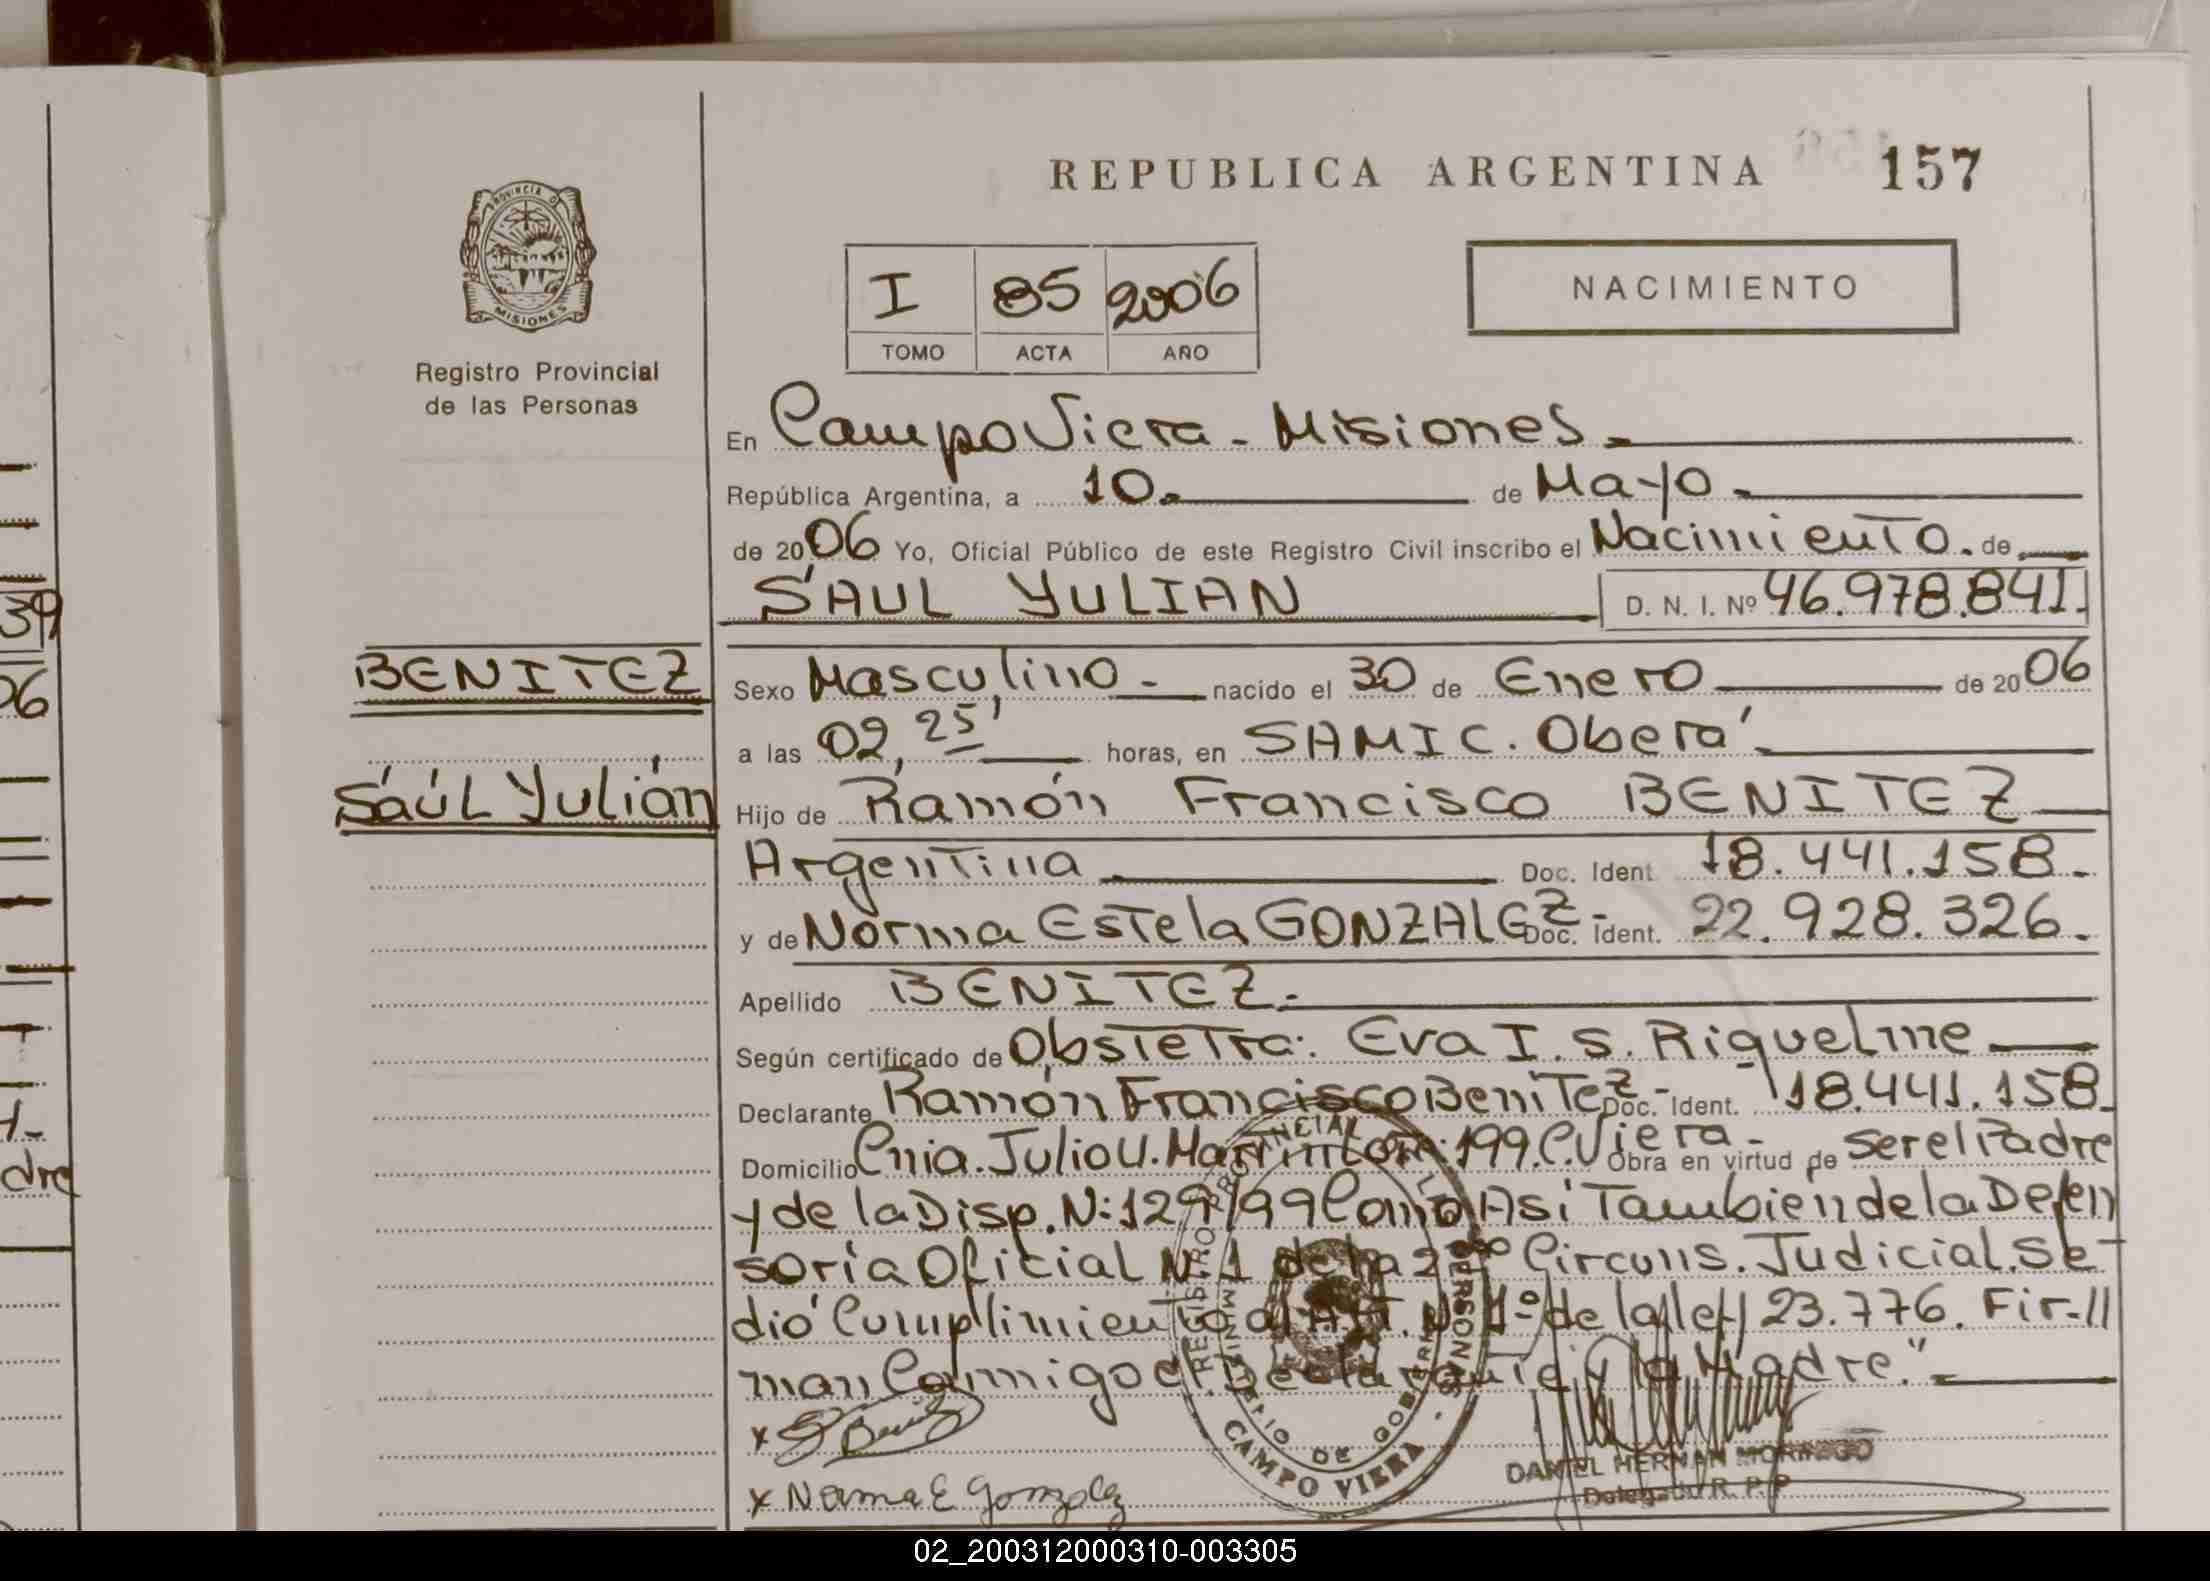 39
06
4-
dre
PROVINCIA DE
MISIONES
Registro Provincial
de las Personas
BENITEZ
Saúl Yulián
REPUBLICA ARGENTINA 157
NACIMIENTO
I 85 2006
TOMO ACTA AÑO
En Campo Viera - Misiones.
República Argentina, a 10. de Mayo.
de 2006 Yo, Oficial Público de este Registro Civil inscribo el Nacimiento. de
SAUL YULIAN D. N. I. Nº 46.978.841.
Sexo Masculino - nacido el 30 de Enero de 2006
a las 02,25' horas, en SAMIC. Oberá
Hijo de Ramón Francisco BENITEZ
Argentina Doc. Ident. 18.441.158.
y de Norma Estela GONZALEZ- Doc. Ident. 22.928.326.
Apellido BENITEZ.
Según certificado de Obstetra: Eva I. S. Riquelme
Declarante Ramón Francisco Benitez- Doc. Ident. 18.441.158.
Domicilio Cnia. Julio U. 199. C. Viera - Obra en virtud de ser el Padre
y de la Disp. N: 129/99 Como Asi Tambien de la Defen
soría Oficial Nº 1 de la 2da Circuns. Judicial. Se
dió Cumplimiento al Art. Nº 1º de la ley 23.776. Fir-//
man Conmigo el Declarante y la Madre."
x
x Norma E Gonzalez
REGISTRO PROVINCIAL DE LAS PERSONAS
MINISTERIO DE GOBIERNO
CAMPO VIERA
DANIEL HERNAN MORINIGO
Delegado R. P. P
02_200312000310-003305